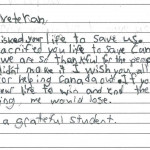 veteran
risked your life to save us.
sacrificed you life to save Can
we are so thankful for the peop
didnt make it I wish you all
for helping Canada out. If yo
your life to win and the
ing, me would lose.
a grateful student.